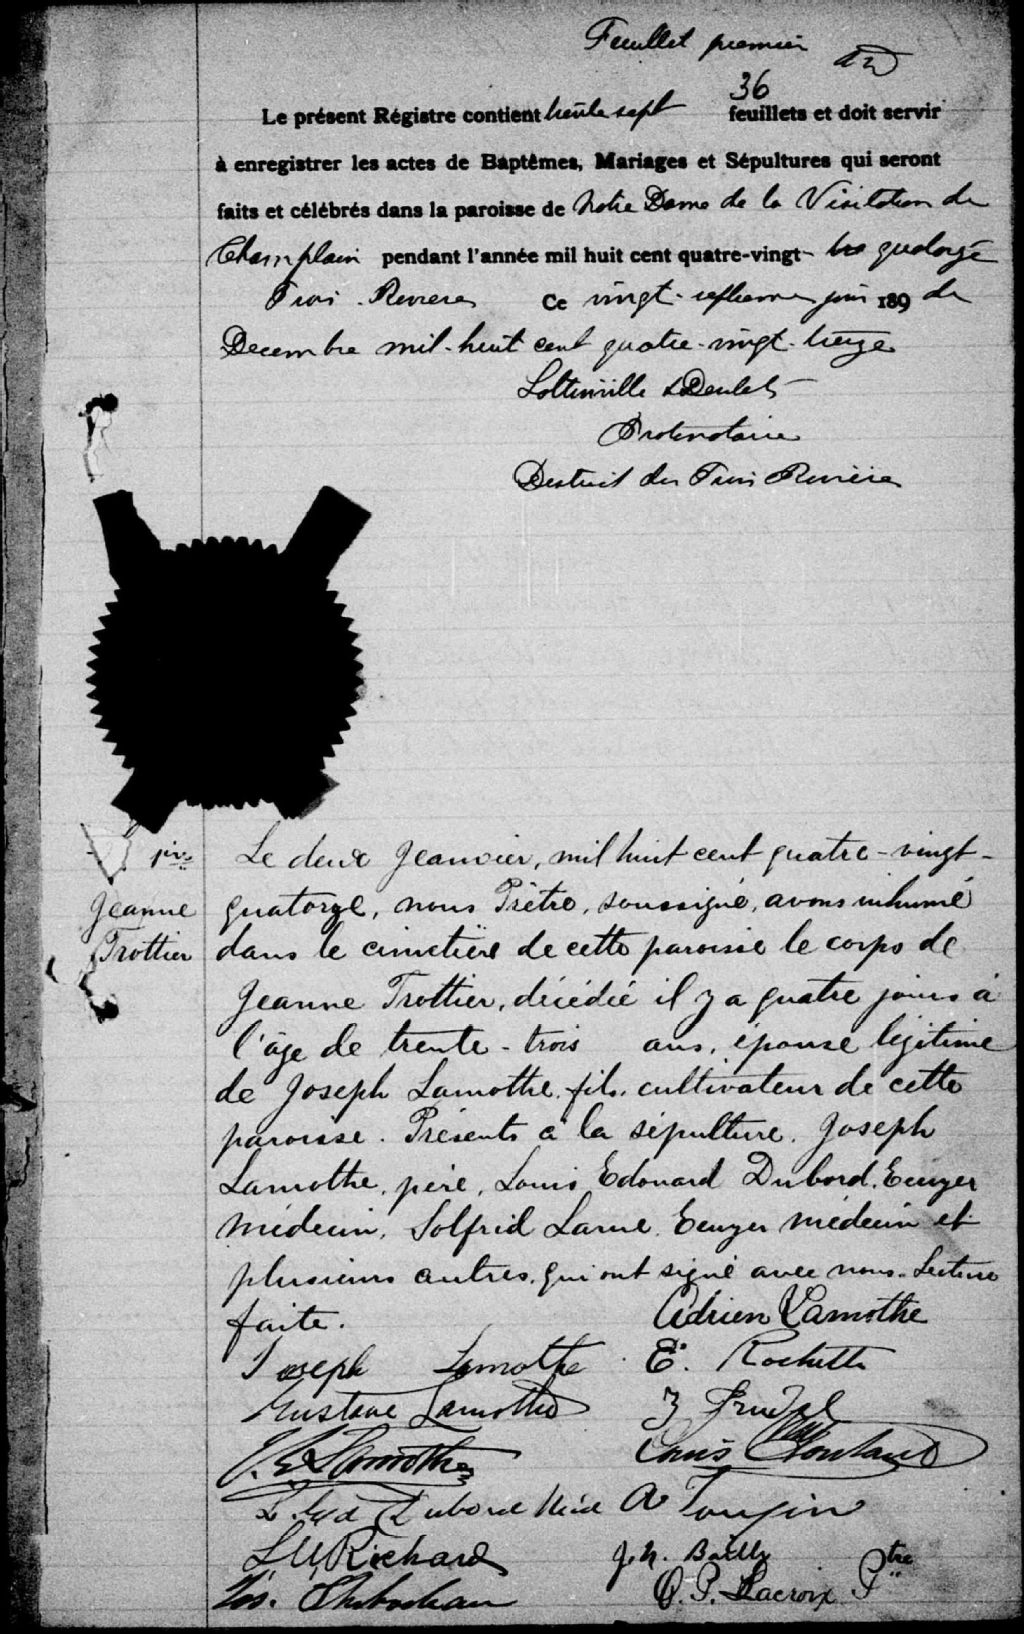 Feuillet premier
36
Le présent Régistre contient trente sept feuillets et doit servir
à enregistrer les actes de Baptêmes, Mariages et Sépultures qui seront
faits et célébrés dans la paroisse de Notre Dame de la Visitation de
Champlain pendant l'année mil huit cent quatre-vingt- quatorze
Trois-Rivieres Ce vingt-septieme jour 189 de
Decembre mil-huit cent quatre-vingt-treize
Lottinville &
Protonotaire
District des Trois Rivières
Le deux Jeanvier, mil huit cent quatre-vingt-
Jeanne
quatorze, nous Prêtre, soussigné, avons inhumé
Trottier
dans le cimetière de cette paroisse le corps de
Jeanne Trottier, décédée il y a quatre jours à
l'âge de trente-trois ans, épouse légitime
de Joseph Lamothe, fils, cultivateur de cette
paroisse. Présents à la sépulture, Joseph
Lamothe, père, Louis Edouard Dubord, Ecuyer
médecin, Solfrid Larue, Ecuyer médecin et
plusieurs autres, qui ont signé avec nous. Lecture
faite.
Adrien Lamothe
Joseph Lamothe
E. Rochette
Gustave Lamothe
Lamothe
Louis
Dubord
A Toupin
Richard
J. N. Bailly
O. P. Lacroix Ptre